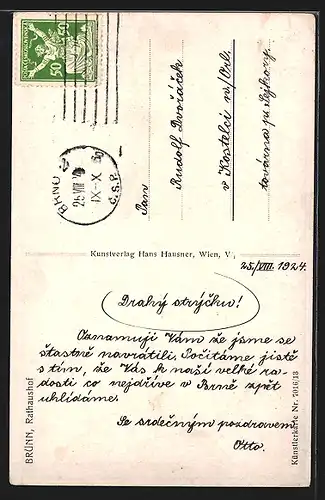 POŠTA ČESKOSLOVENSKÁ
50 50
BRNO
25 VIII
IX-X
Č.S.P.
Pan
Rudolf Dvořáček
v Kostelci n/Orl.
továrna pí Sejkory.
Kunstverlag Hans Hausner, Wien, V
25./VIII. 1924.
Drahý strýčku!
Oznamuji Vám že jsme se
šťastně navrátili. Počítáme jistě
s tím, že Vás k naší velké ra-
dosti co nejdříve v Brně zpět
uhlídáme.
Se srdečným pozdravem
Otto.
BRÜNN, Rathaushof
Künstlerkarte Nr. 7016/13